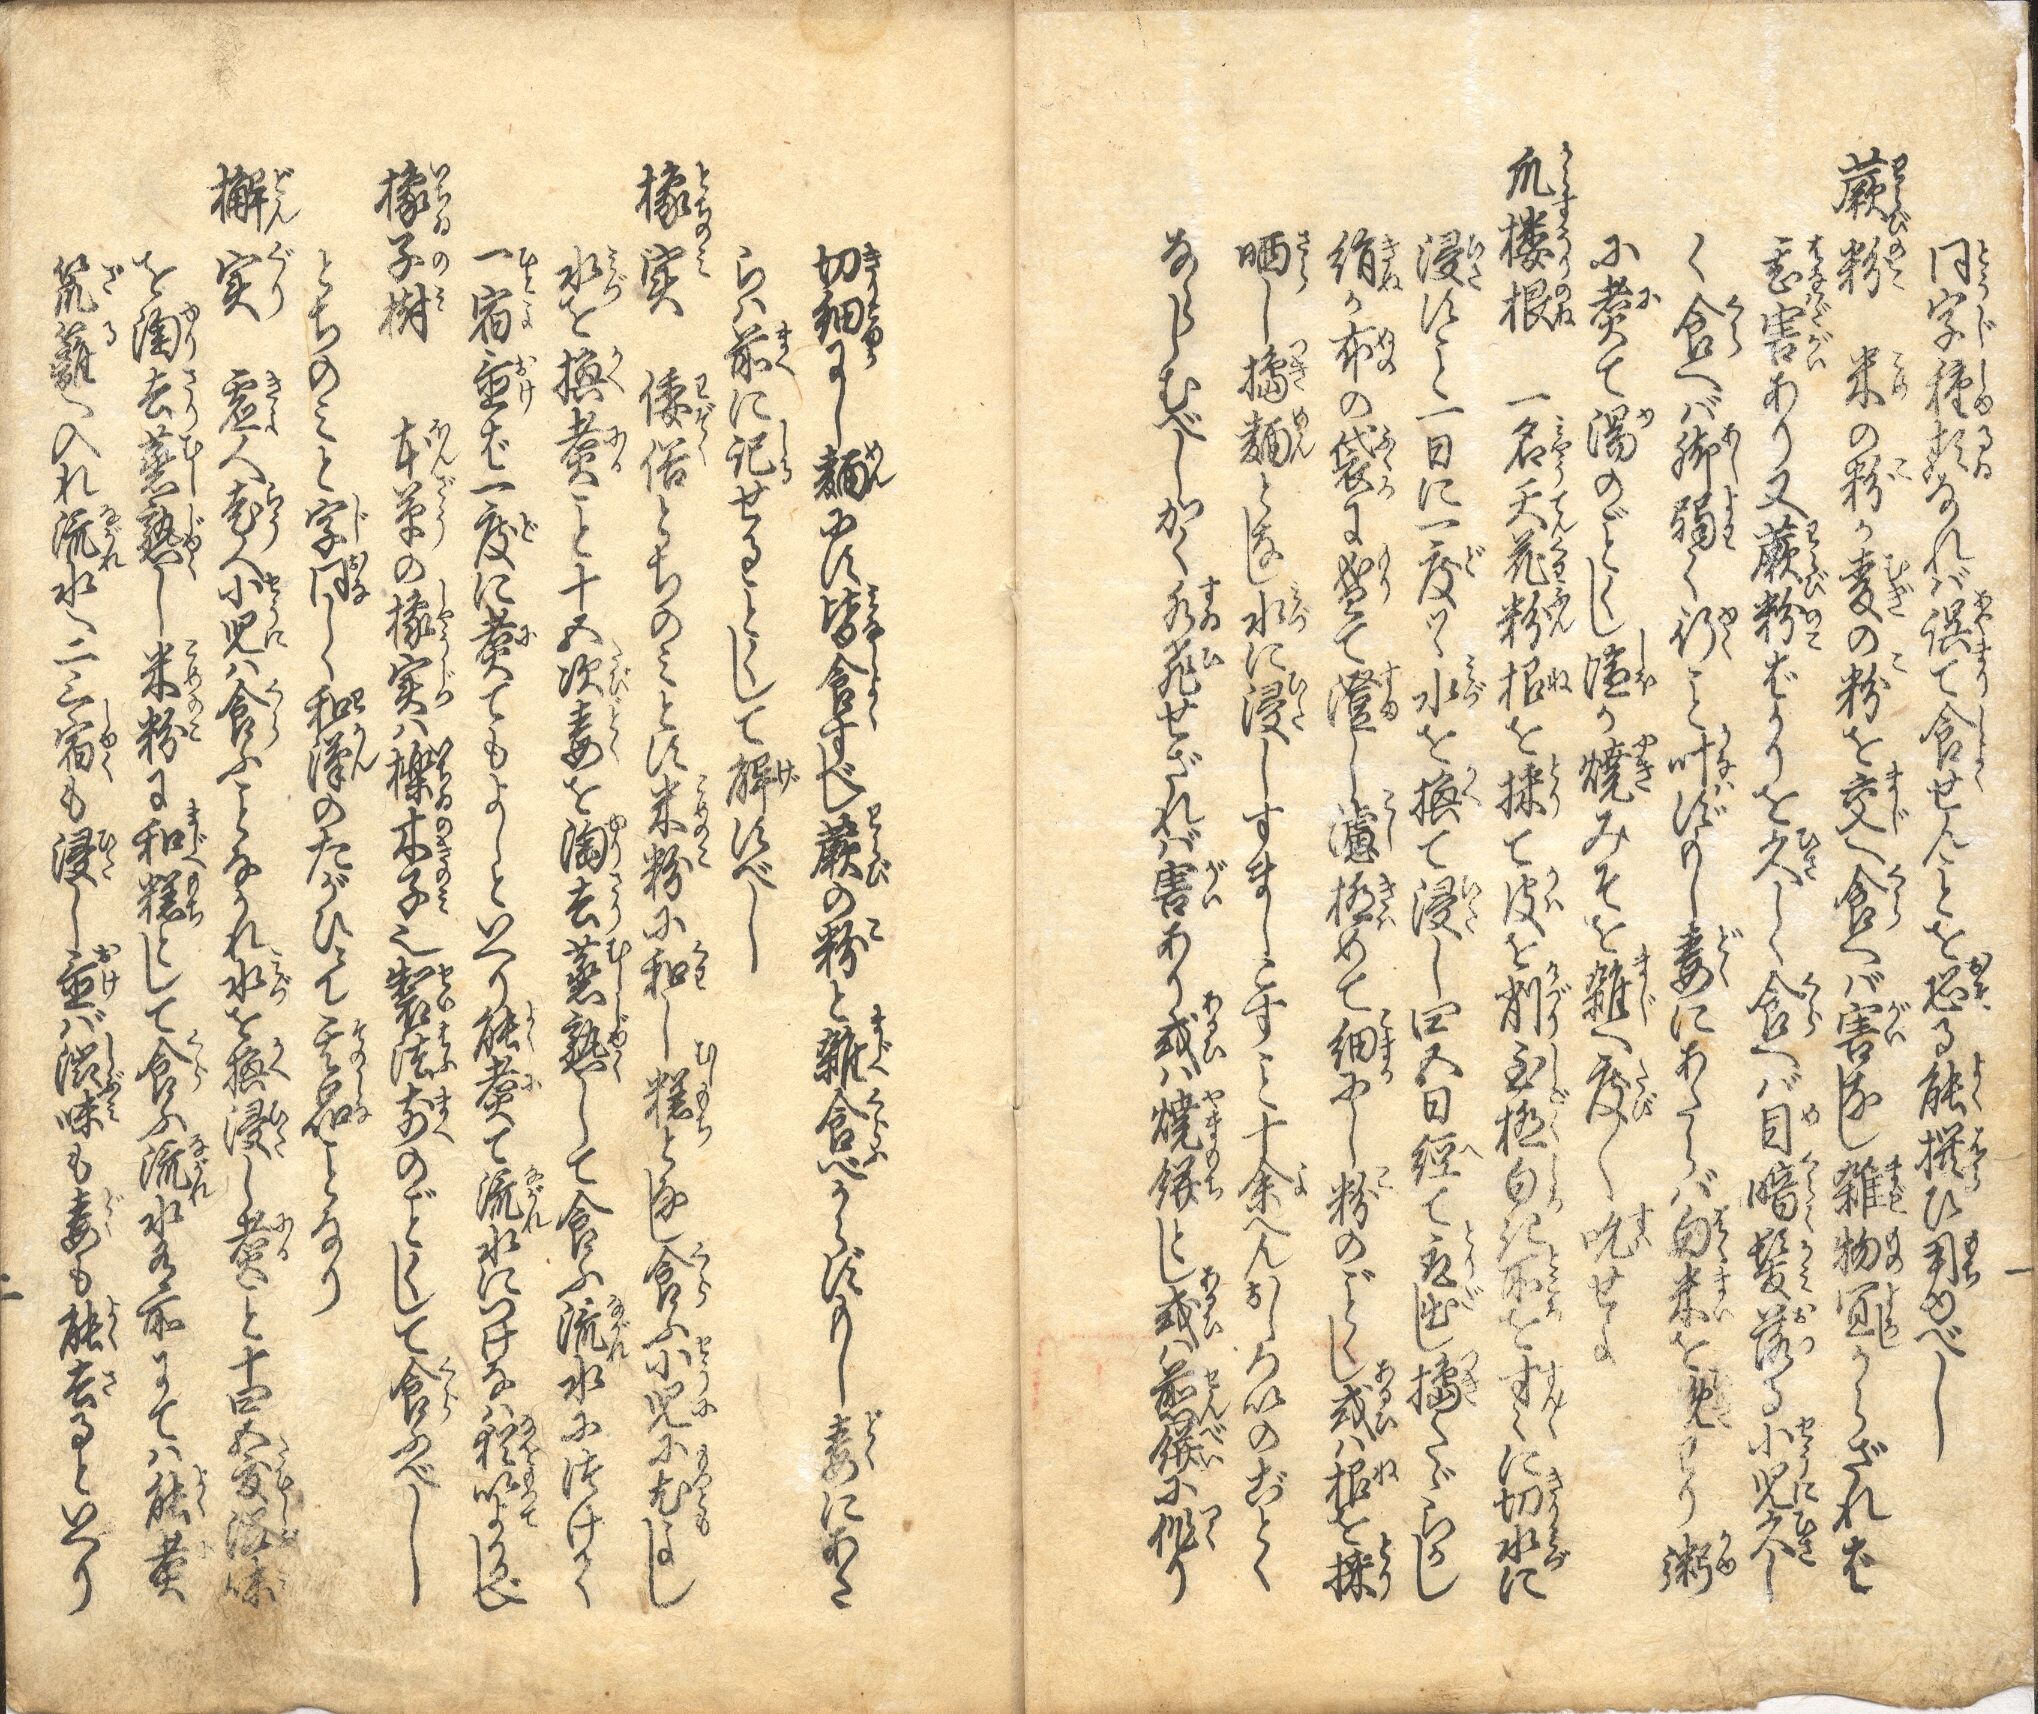 同字種類なれば誤て食せんことを恐る能撰ひ用ゆべし
蕨粉　米の粉か麦の粉を交へ食へバ害なし雑物宜からざれば
害あり又蕨粉ばかりを久しく食へバ目暗髪落る小児久し
く食へバ脚弱く行こと叶はずもし毒にあたらバ白米を粥
に煮て湯のごとくし塩か焼みそを雑へ度〱吃せよ
瓜楼根　一名天花粉根を採て皮を削至極白き所をすん〱に切水に
浸すこと一日に一度ツヽ水を換て浸し四五日経て取出し搗たゞらかし
絹か布の袋に盛て澄し濾極めて細にし粉のごとくし或ハ根を採
晒し搗麺となし水に浸しすましこすこと十余へんおしろいのごとく
ならしむべしかく水飛せざれバ害あり或ハ焼餅とし或ハ煎餅に作り
切細にし麺に皆食すべし蕨の粉と雑食べからずもし毒にあた
らハ前に記せるごとくして解すべし
橡実　倭俗とちのみと米粉に和し糕となし食ふ小児に尤よし
水を換煮こと十五次毒を淘去蒸熟して食ふ流水につけて
一宿置ば一度に煮てもよしといへり能煮て流水につけなハ
橡子樹　本草の橡実ハ櫟木子也製法前のごとくして食ふべし
とちのみと字同しく和漢のたがひにて其品ことなり
槲実　虚人老人小児ハ食ふことなかれ水を換浸し煮こと十四五度渋味
を淘去蒸熟し米粉に和糕として食ふ流水なき所にてハ能煮
筲籮へ入れ流水へ二三宿も浸し置バ渋味も毒も能去るといへり
二